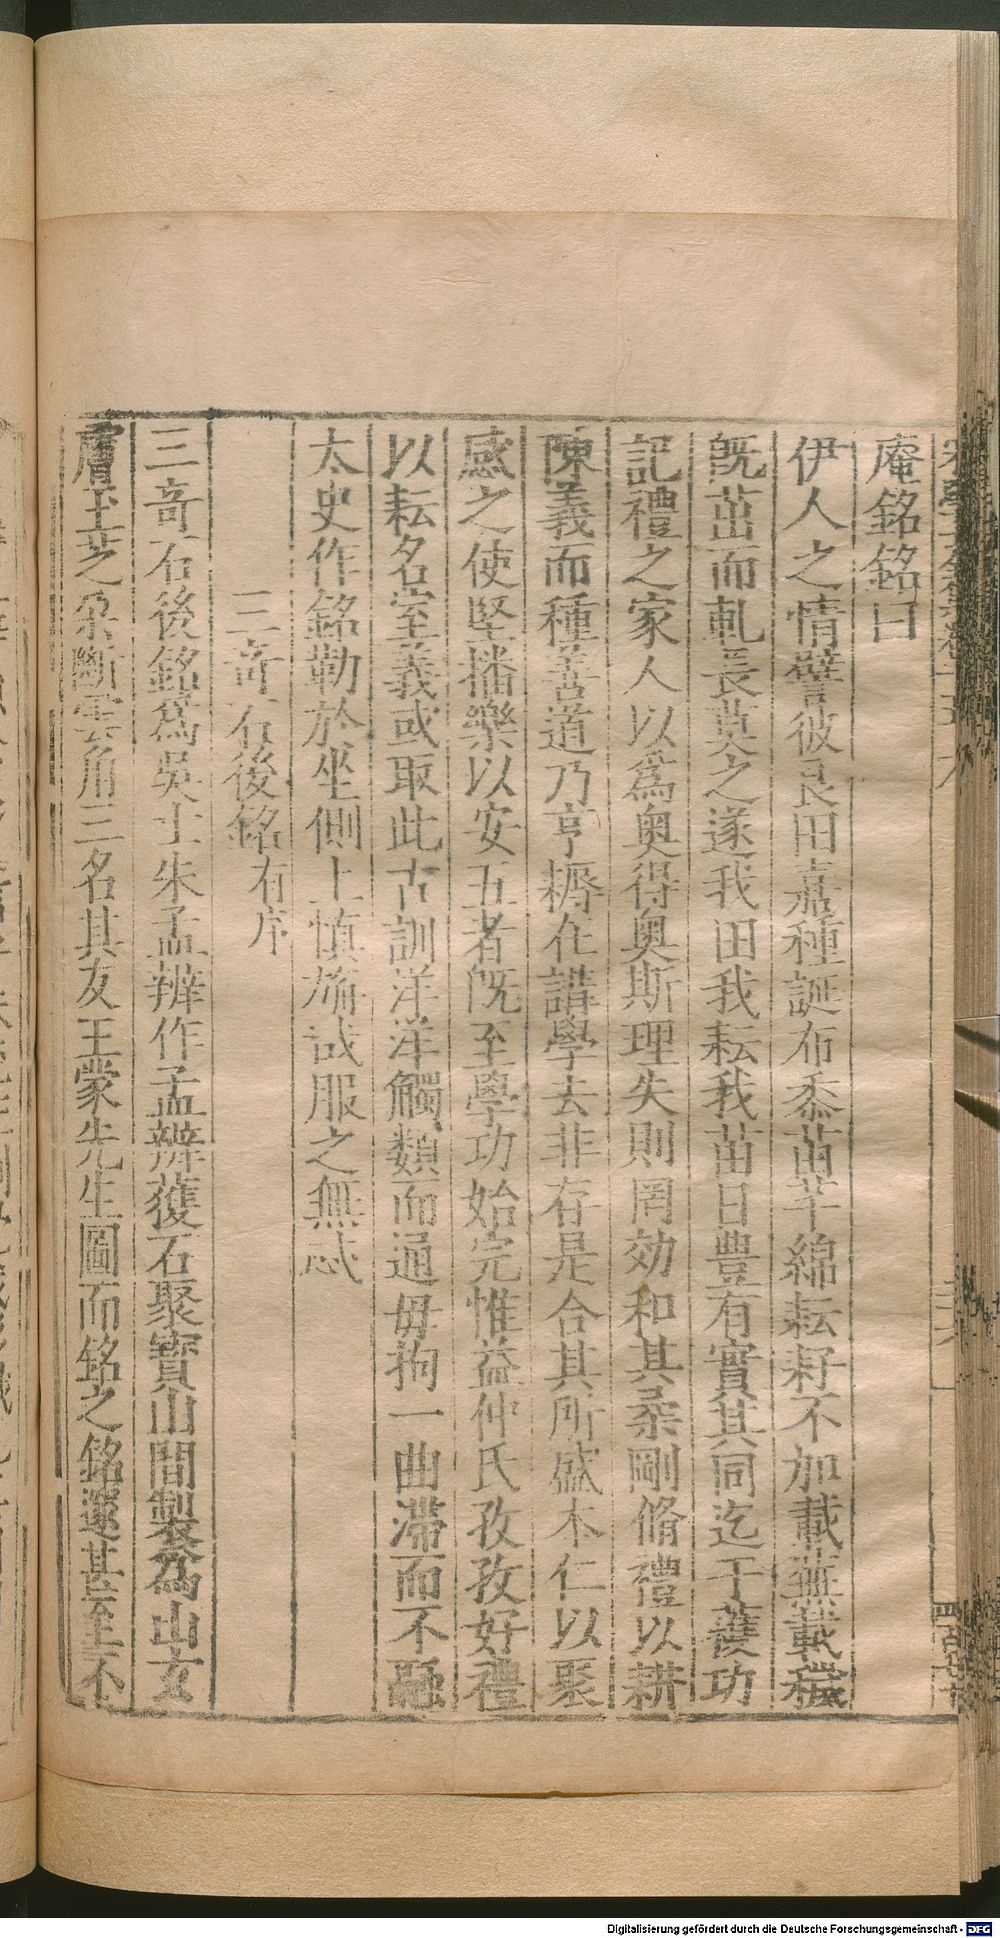 庵銘銘曰
伊人之情譬彼良田嘉種誕布黍苗芊綿耘耔不加載蕪載穢
旣茁而軋長莫之遂我田我耘我苗日豊有實其同迄于䕶功
記禮之家人以爲奧得奧斯理失則罔効和其柔剛脩禮以耕
陳義而種善道乃亨耨在講學去非存是合其所盛本仁以聚
感之使堅播樂以安五者旣至學功始完惟益仲氏孜孜好禮
以耘名室義或取此古訓洋洋觸類而通毋拘一曲滯而不融
太史作銘勒於坐側上慎旃哉服之無忒
三奇石後銘有序
三奇石後銘爲吳士朱孟辨作孟辨獲石聚寶山間製爲山玄
膚玉芝朶斷雲角三名其友王蒙先生圖而銘之銘邃甚至不
Digitalisierung gefördert durch die Deutsche Forschungsgemeinschaft - DFG